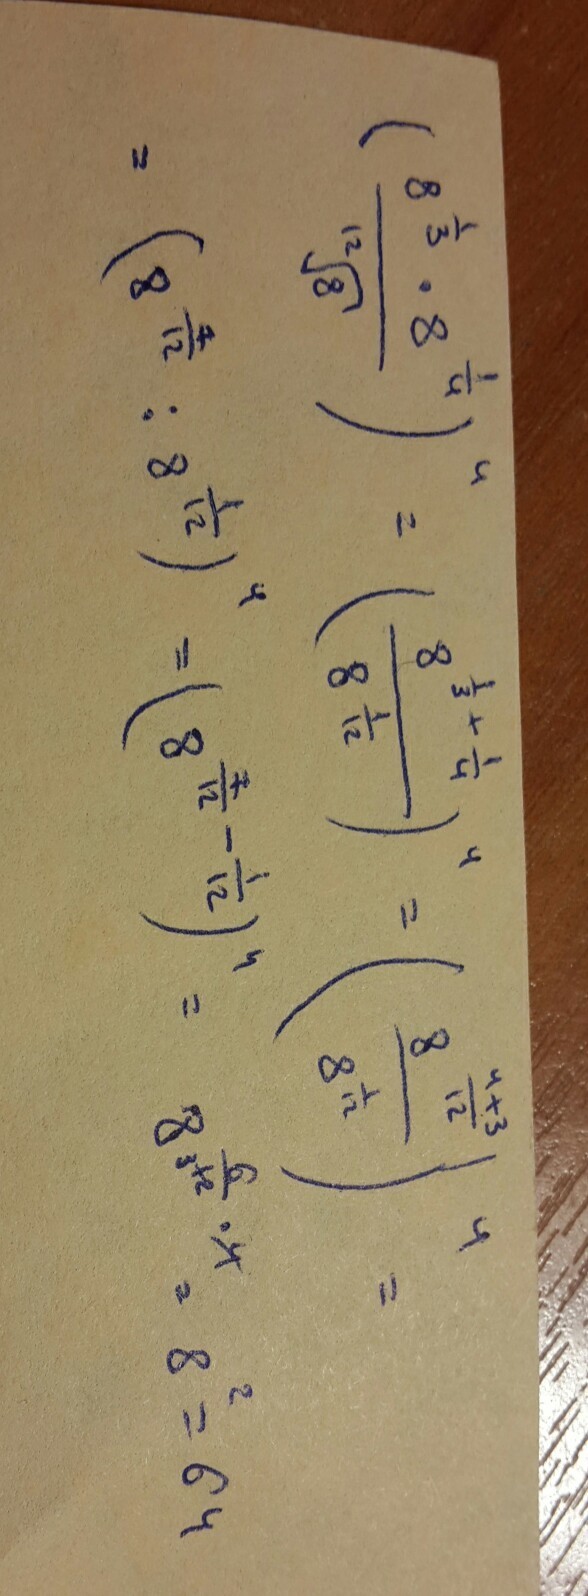 (8^{1/3} · 8^{1/4} / ¹²√8)^4 = (8^{1/3 + 1/4} / 8^{1/12})^4 = (8^{(4+3)/12} / 8^{1/12})^4 =
= (8^{7/12} : 8^{1/12})^4 = (8^{7/12 - 1/12})^4 = 8^{6/12 · 4} = 8^2 = 64